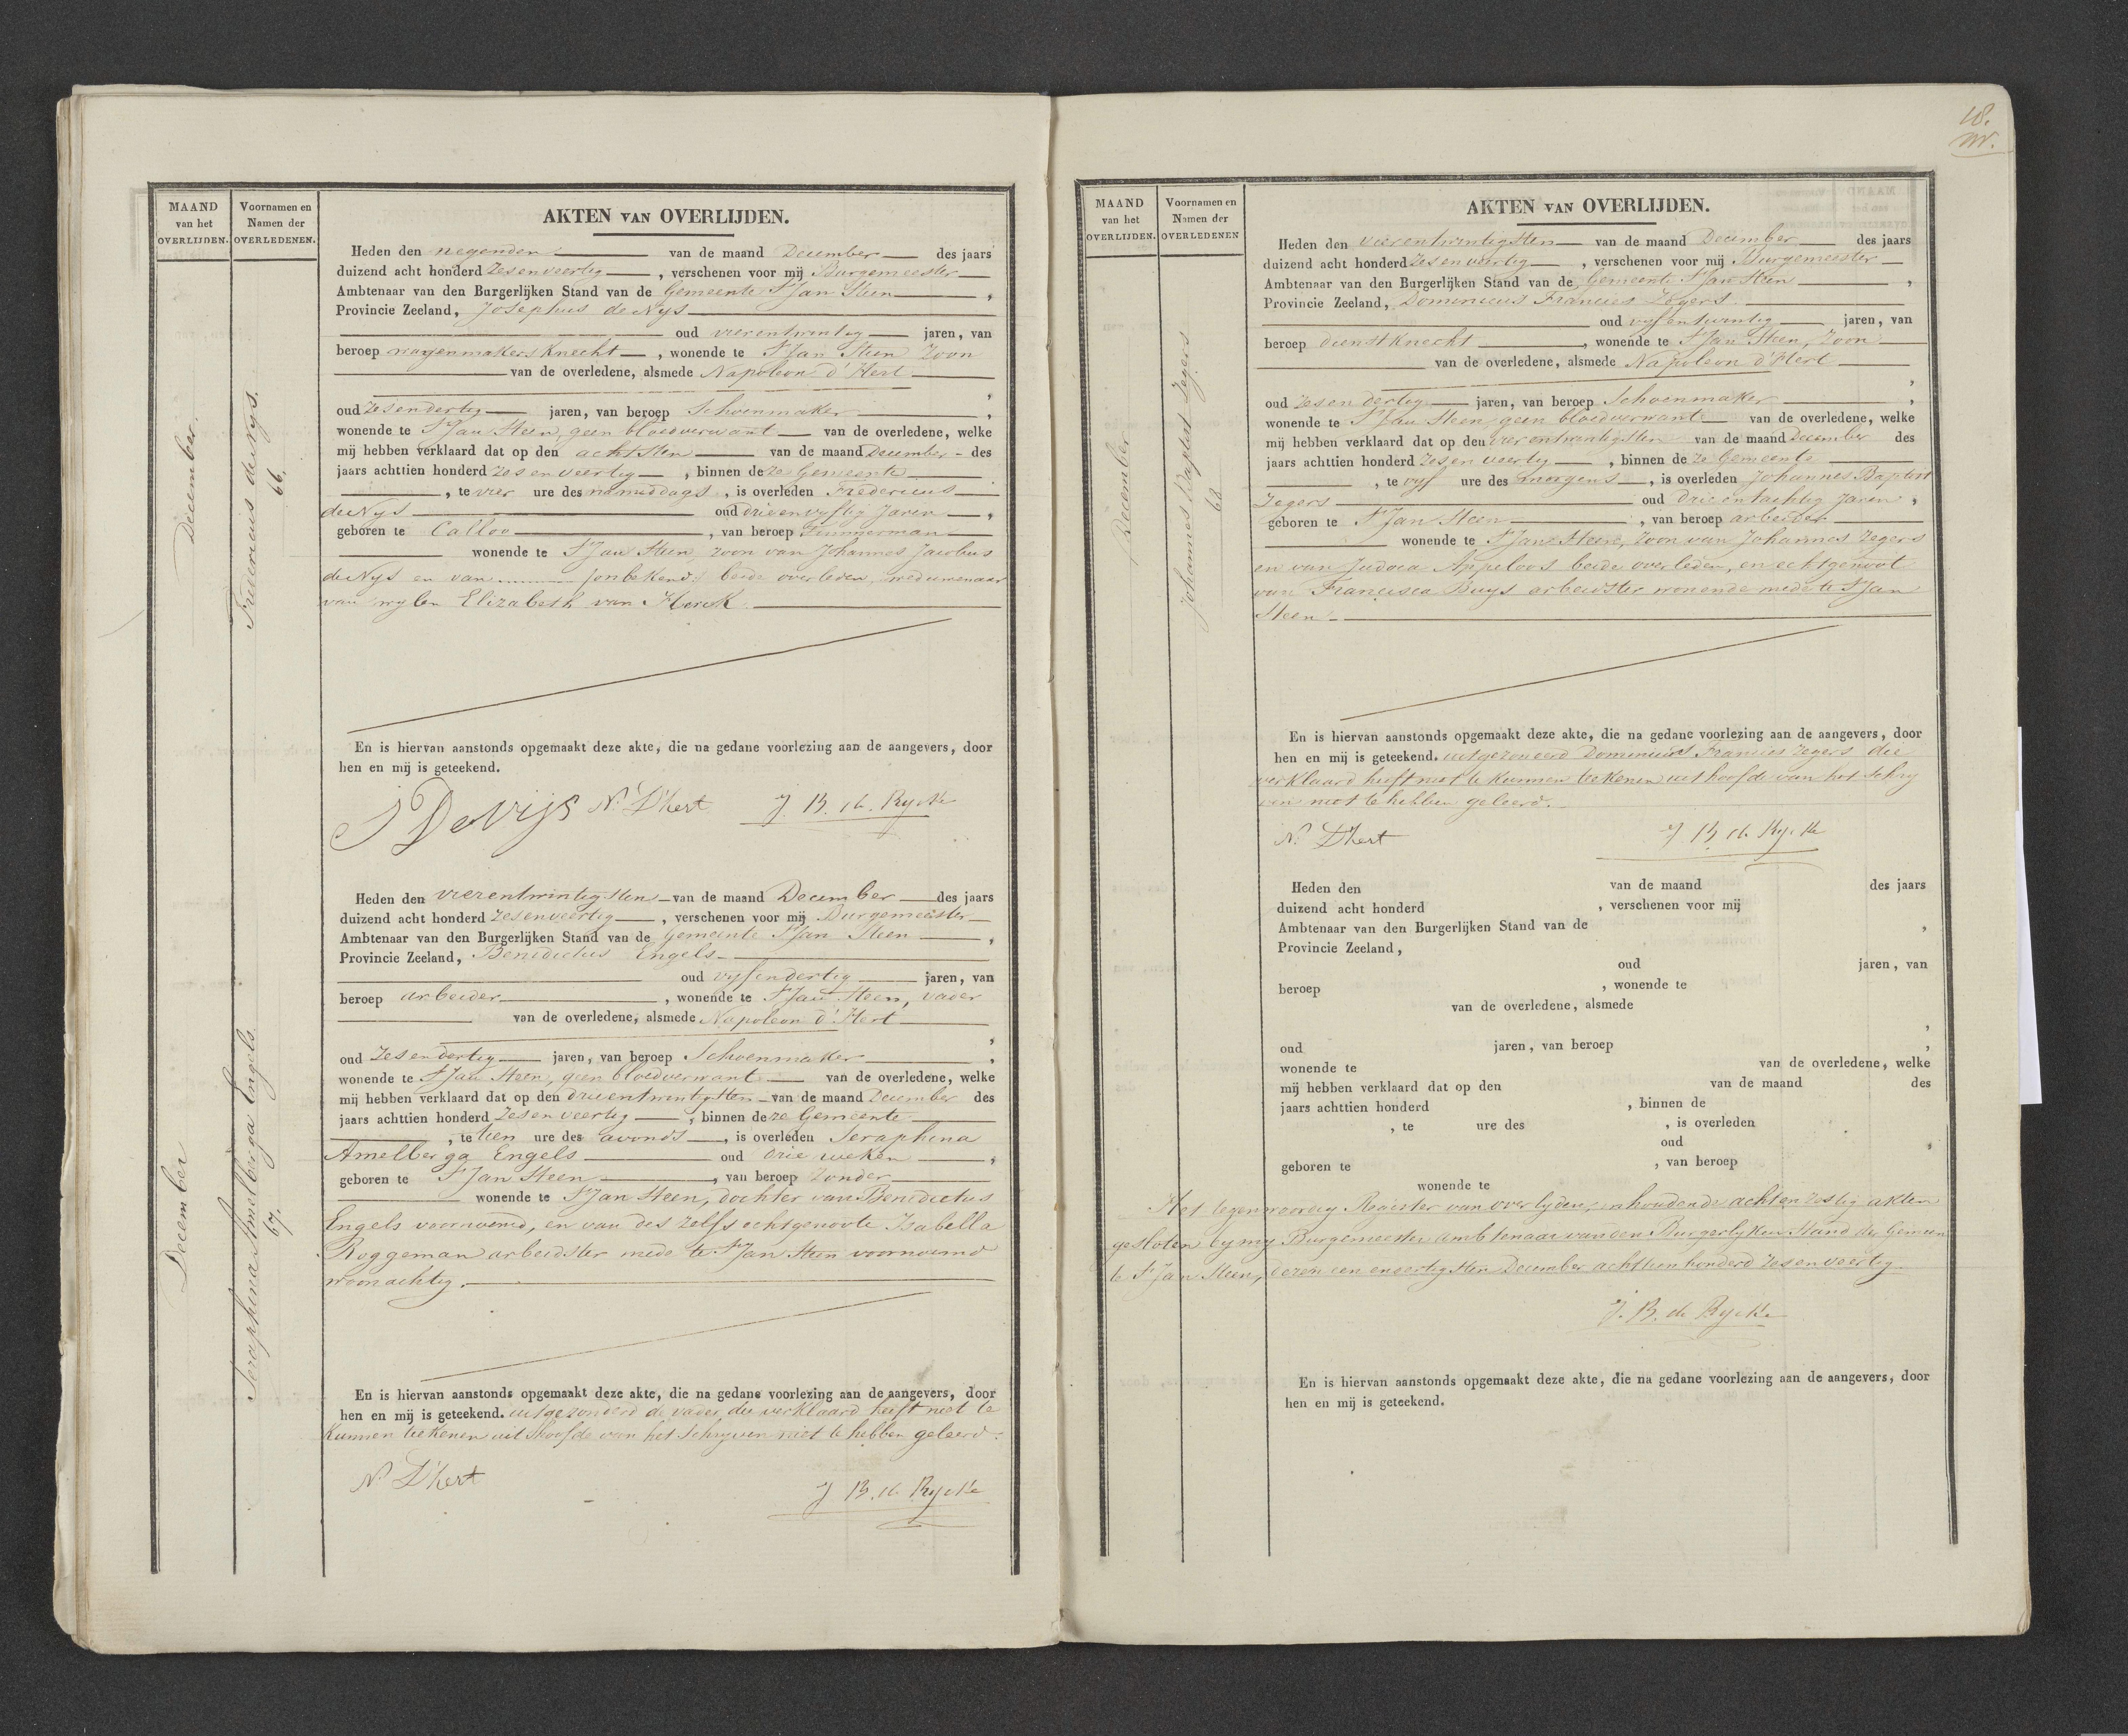 MAAND
van het
OVERLIJDEN.
Voornamen en
Namen der
OVERLEDENEN.
December.
Fredericus de Nijs.
66.
AKTEN VAN OVERLIJDEN.
Heden den negenden van de maand December des jaars
duizend acht honderd zesenveertig, verschenen voor mij Burgemeester
Ambtenaar van den Burgerlijken Stand van de Gemeente St Jan Steen,
Provincie Zeeland, Josephus de Nijs
oud vierentwintig jaren, van
beroep wagenmakersknecht, wonende te St Jan Steen Zoon
van de overledene, alsmede Napoleon d'Hert
,
oud zesendertig jaren, van beroep Schoenmaker,
wonende te St Jan Steen, geen bloedverwant van de overledene, welke
mij hebben verklaard dat op den achtsten van de maand December des
jaars achttien honderd zesenveertig, binnen deze Gemeente
, te vier ure des namiddags, is overleden Fredericus
de Nijs oud drieenvyftig Jaren,
geboren te Calloo, van beroep Timmerman
wonende te St Jan Steen, zoon van Johannes Jacobus
de Nijs en van (onbekend) beide overleden, weduwenaar
van wylen Elizabeth van Kerck.
En is hiervan aanstonds opgemaakt deze akte, die na gedane voorlezing aan de aangevers, door
hen en mij is geteekend.
J DeNijs N. D'hert J. B. de Rycke
December
Seraphina Amelberga Engels.
67.
Heden den vierentwintigsten van de maand December des jaars
duizend acht honderd zesenveertig, verschenen voor mij Burgemeester
Ambtenaar van den Burgerlijken Stand van de Gemeente St Jan Steen,
Provincie Zeeland, Benedictus Engels
oud vyfendertig jaren, van
beroep arbeider, wonende te St Jan Steen, vader
van de overledene, alsmede Napoleon d'Hert
,
oud zesendertig jaren, van beroep Schoenmaker,
wonende te St Jan Steen, geen bloedverwant van de overledene, welke
mij hebben verklaard dat op den drieentwintigsten van de maand December des
jaars achttien honderd zesenveertig, binnen deze Gemeente
, te tien ure des avonds, is overleden Seraphina
Amelberga Engels oud drie weken,
geboren te St Jan Steen, van beroep zonder
wonende te St Jan Steen, dochter van Benedictus
Engels voornoemd, en van des zelfs echtgenoote Isabella
Roggeman arbeidster mede te St Jan Steen voornoemd
woonachtig.
En is hiervan aanstonds opgemaakt deze akte, die na gedane voorlezing aan de aangevers, door
hen en mij is geteekend. uitgezonderd de vader, die verklaard heeft niet te
kunnen teekenen uit hoofde van het schryven niet te hebben geleerd.
N. D'hert J B. de Rycke
18.
MAAND
van het
OVERLIJDEN.
Voornamen en
Namen der
OVERLEDENEN
December
Johannes Baptist Zegers
68
AKTEN VAN OVERLIJDEN.
Heden den vierentwintigsten van de maand December des jaars
duizend acht honderd zesenveertig, verschenen voor mij Burgemeester
Ambtenaar van den Burgerlijken Stand van de Gemeente St Jan Steen,
Provincie Zeeland, Dominicus Francies Zegers
oud vyfentwintig jaren, van
beroep dienstknecht, wonende te St Jan Steen, Zoon
van de overledene, alsmede Napoleon d'Hert
,
oud zesendertig jaren, van beroep Schoenmaker,
wonende te St Jan Steen, geen bloedverwant van de overledene, welke
mij hebben verklaard dat op den vierentwintigsten van de maand December des
jaars achttien honderd zesenveertig, binnen deze Gemeente
, te vyf ure des morgens, is overleden Johannes Baptist
Zegers oud drieentachtig Jaren,
geboren te St Jan Steen, van beroep arbeider
wonende te St Jan Steen, Zoon van Johannes Zegers
en van Judoca Appeloos beide overleden, en echtgenoot
van Francisca Buys arbeidster wonende mede te St Jan
Steen.
En is hiervan aanstonds opgemaakt deze akte, die na gedane voorlezing aan de aangevers, door
hen en mij is geteekend. uitgezonderd Dominicus Francies Zegers die
verklaard heeft niet te kunnen teekenen uit hoofde van het schry
ven niet te hebben geleerd.
N. D'hert J. B. de Rycke
Heden den van de maand des jaars
duizend acht honderd, verschenen voor mij
Ambtenaar van den Burgerlijken Stand van de,
Provincie Zeeland,
oud jaren, van
beroep, wonende te
van de overledene, alsmede
,
oud jaren, van beroep,
wonende te van de overledene, welke
mij hebben verklaard dat op den van de maand des
jaars achttien honderd, binnen de
, te ure des, is overleden
oud,
geboren te, van beroep
wonende te
Het tegenwoordig Register van overlyden, inhoudende achtenzestig akten
gesloten by my Burgemeester ambtenaar van den Burgerlyken Stand der Gemeen
te St Jan Steen, dezen een en dertigsten December achttienhonderd zesenveertig.
J. B. de Rycke
En is hiervan aanstonds opgemaakt deze akte, die na gedane voorlezing aan de aangevers, door
hen en mij is geteekend.